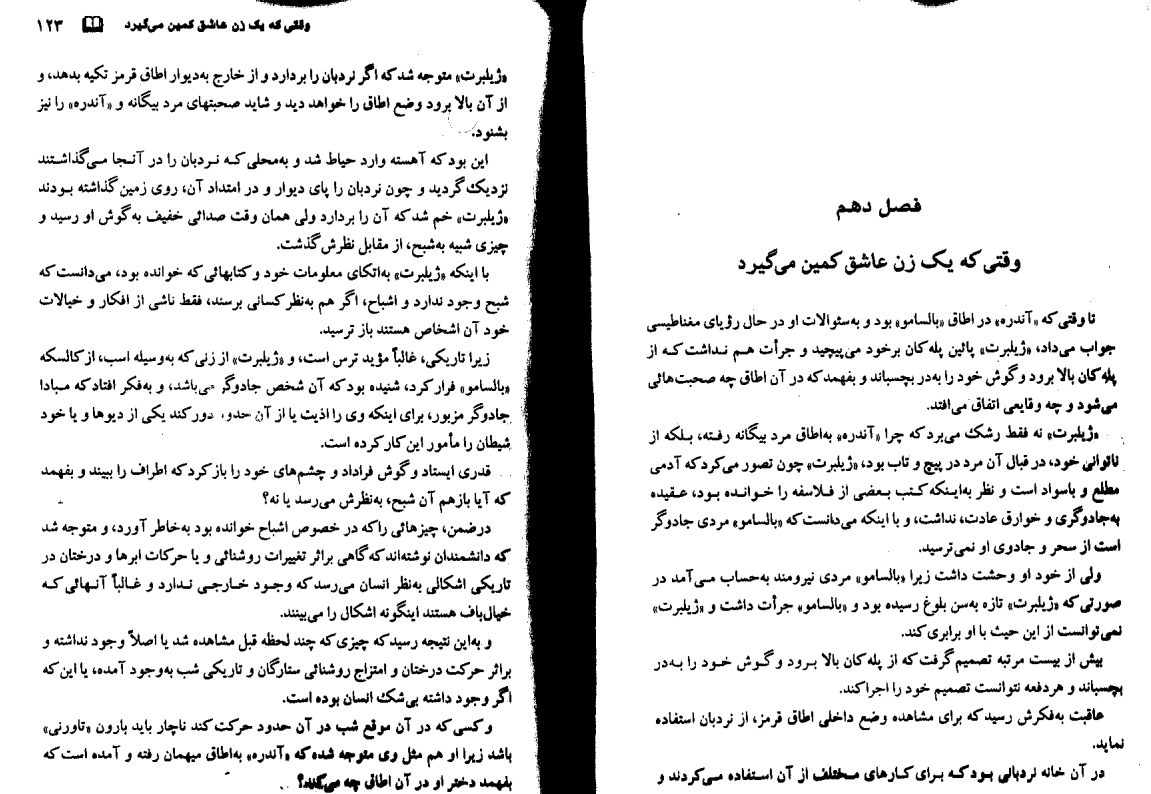 فصل دهم
وقتی که یک زن عاشق کمین می‌گیرد
تا وقتی که «آندره» در اطاق «بالسامو» بود و به‌سئوالات او در حال رؤیای مغناطیسی
جواب می‌داد، «ژیلبرت» پائین پله‌کان برخود می‌پیچید و جرأت هم نداشت که از
پله‌کان بالا برود و گوش خود را به‌در بچسباند و بفهمد که در آن اطاق چه صحبت‌هائی
می‌شود و چه وقایعی اتفاق می‌افتد.
«ژیلبرت» نه فقط رشک می‌برد که چرا «آندره» به‌اطاق مرد بیگانه رفته، بلکه از
ناتوانی خود، در قبال آن مرد در پیچ و تاب بود، «ژیلبرت» چون تصور می‌کرد که آدمی
مطلع و باسواد است و نظر به‌اینکه کتب بعضی از فلاسفه را خوانده بود، عقیده
به‌جادوگری و خوارق عادت، نداشت، و با اینکه می‌دانست که «بالسامو» مردی جادوگر
است از سحر و جادوی او نمی‌ترسید.
ولی از خود او وحشت داشت زیرا «بالسامو» مردی نیرومند به‌حساب می‌آمد در
صورتی که «ژیلبرت» تازه به‌سن بلوغ رسیده بود و «بالسامو» جرأت داشت و «ژیلبرت»
نمی‌توانست از این حیث با او برابری کند.
بیش از بیست مرتبه تصمیم گرفت که از پله‌کان بالا برود و گوش خود را به‌در
بچسباند و هردفعه نتوانست تصمیم خود را اجرا کند.
عاقبت به‌فکرش رسید که برای مشاهده وضع داخلی اطاق قرمز، از نردبان استفاده
نماید.
در آن خانه نردبانی بود که برای کارهای مختلف از آن استفاده می‌کردند و
وقتی که یک زن عاشق کمین می‌گیرد ۱۲۳
«ژیلبرت» متوجه شد که اگر نردبان را بردارد و از خارج به‌دیوار اطاق قرمز تکیه بدهد، و
از آن بالا برود وضع اطاق را خواهد دید و شاید صحبتهای مرد بیگانه و «آندره» را نیز
بشنود.
این بود که آهسته وارد حیاط شد و به‌محلی که نردبان را در آنجا می‌گذاشتند
نزدیک گردید و چون نردبان را پای دیوار و در امتداد آن، روی زمین گذاشته بودند
«ژیلبرت» خم شد که آن را بردارد ولی همان وقت صدائی خفیف به‌گوش او رسید و
چیزی شبیه به‌شبح، از مقابل نظرش گذشت.
با اینکه «ژیلبرت» به‌اتکای معلومات خود و کتابهائی که خوانده بود، می‌دانست که
شبح وجود ندارد و اشباح، اگر هم به‌نظر کسانی برسند، فقط ناشی از افکار و خیالات
خود آن اشخاص هستند باز ترسید.
زیرا تاریکی، غالباً مؤید ترس است، و «ژیلبرت» از زنی که به‌وسیله اسب، از کالسکه
«بالسامو» فرار کرد، شنیده بود که آن شخص جادوگر می‌باشد، و به‌فکر افتاد که مبادا
جادوگر مزبور، برای اینکه وی را اذیت یا از آن حدود دور کند یکی از دیوها و یا خود
شیطان را مأمور این کار کرده است.
قدری ایستاد و گوش فراداد و چشم‌های خود را باز کرد که اطراف را ببیند و بفهمد
که آیا بازهم آن شبح، به‌نظرش می‌رسد یا نه؟
درضمن، چیزهائی را که در خصوص اشباح خوانده بود به‌خاطر آورد، و متوجه شد
که دانشمندان نوشته‌اند که گاهی براثر تغییرات روشنائی و یا حرکات ابرها و درختان در
تاریکی اشکالی به‌نظر انسان می‌رسد که وجود خارجی ندارد و غالباً آنهائی که
خیال‌باف هستند اینگونه اشکال را می‌بینند.
و به‌این نتیجه رسید که چیزی که چند لحظه قبل مشاهده شد یا اصلاً وجود نداشته و
براثر حرکت درختان و امتزاج روشنائی ستارگان و تاریکی شب به‌وجود آمده، یا این که
اگر وجود داشته بی‌شک انسان بوده است.
و کسی که در آن موقع شب در آن حدود حرکت کند ناچار باید بارون «تاورنی»
باشد زیرا او هم مثل وی متوجه شده که «آندره» به‌اطاق میهمان رفته و آمده است که
بفهمد دختر او در آن اطاق چه می‌کند؟